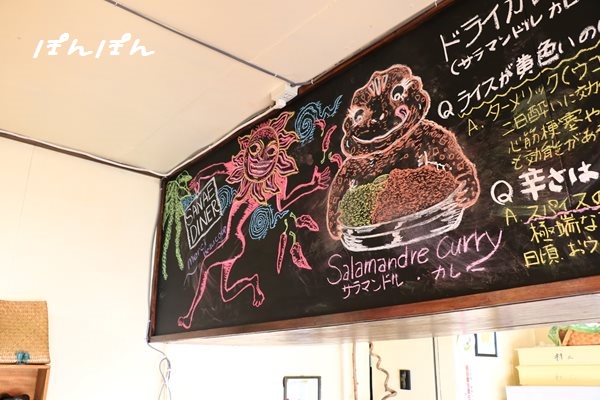 ぽんぽん
SANAE
DINER
Salamandre Curry
サラマンドル・カレー
ドライカ
(サラマンドル カレ
Q ライスが黄色いの
A. ターメリック(ウコ
二日酔いに
心筋梗塞や
と効能があ
Q 辛さは
A. スパイスの
極端な
日頃、お